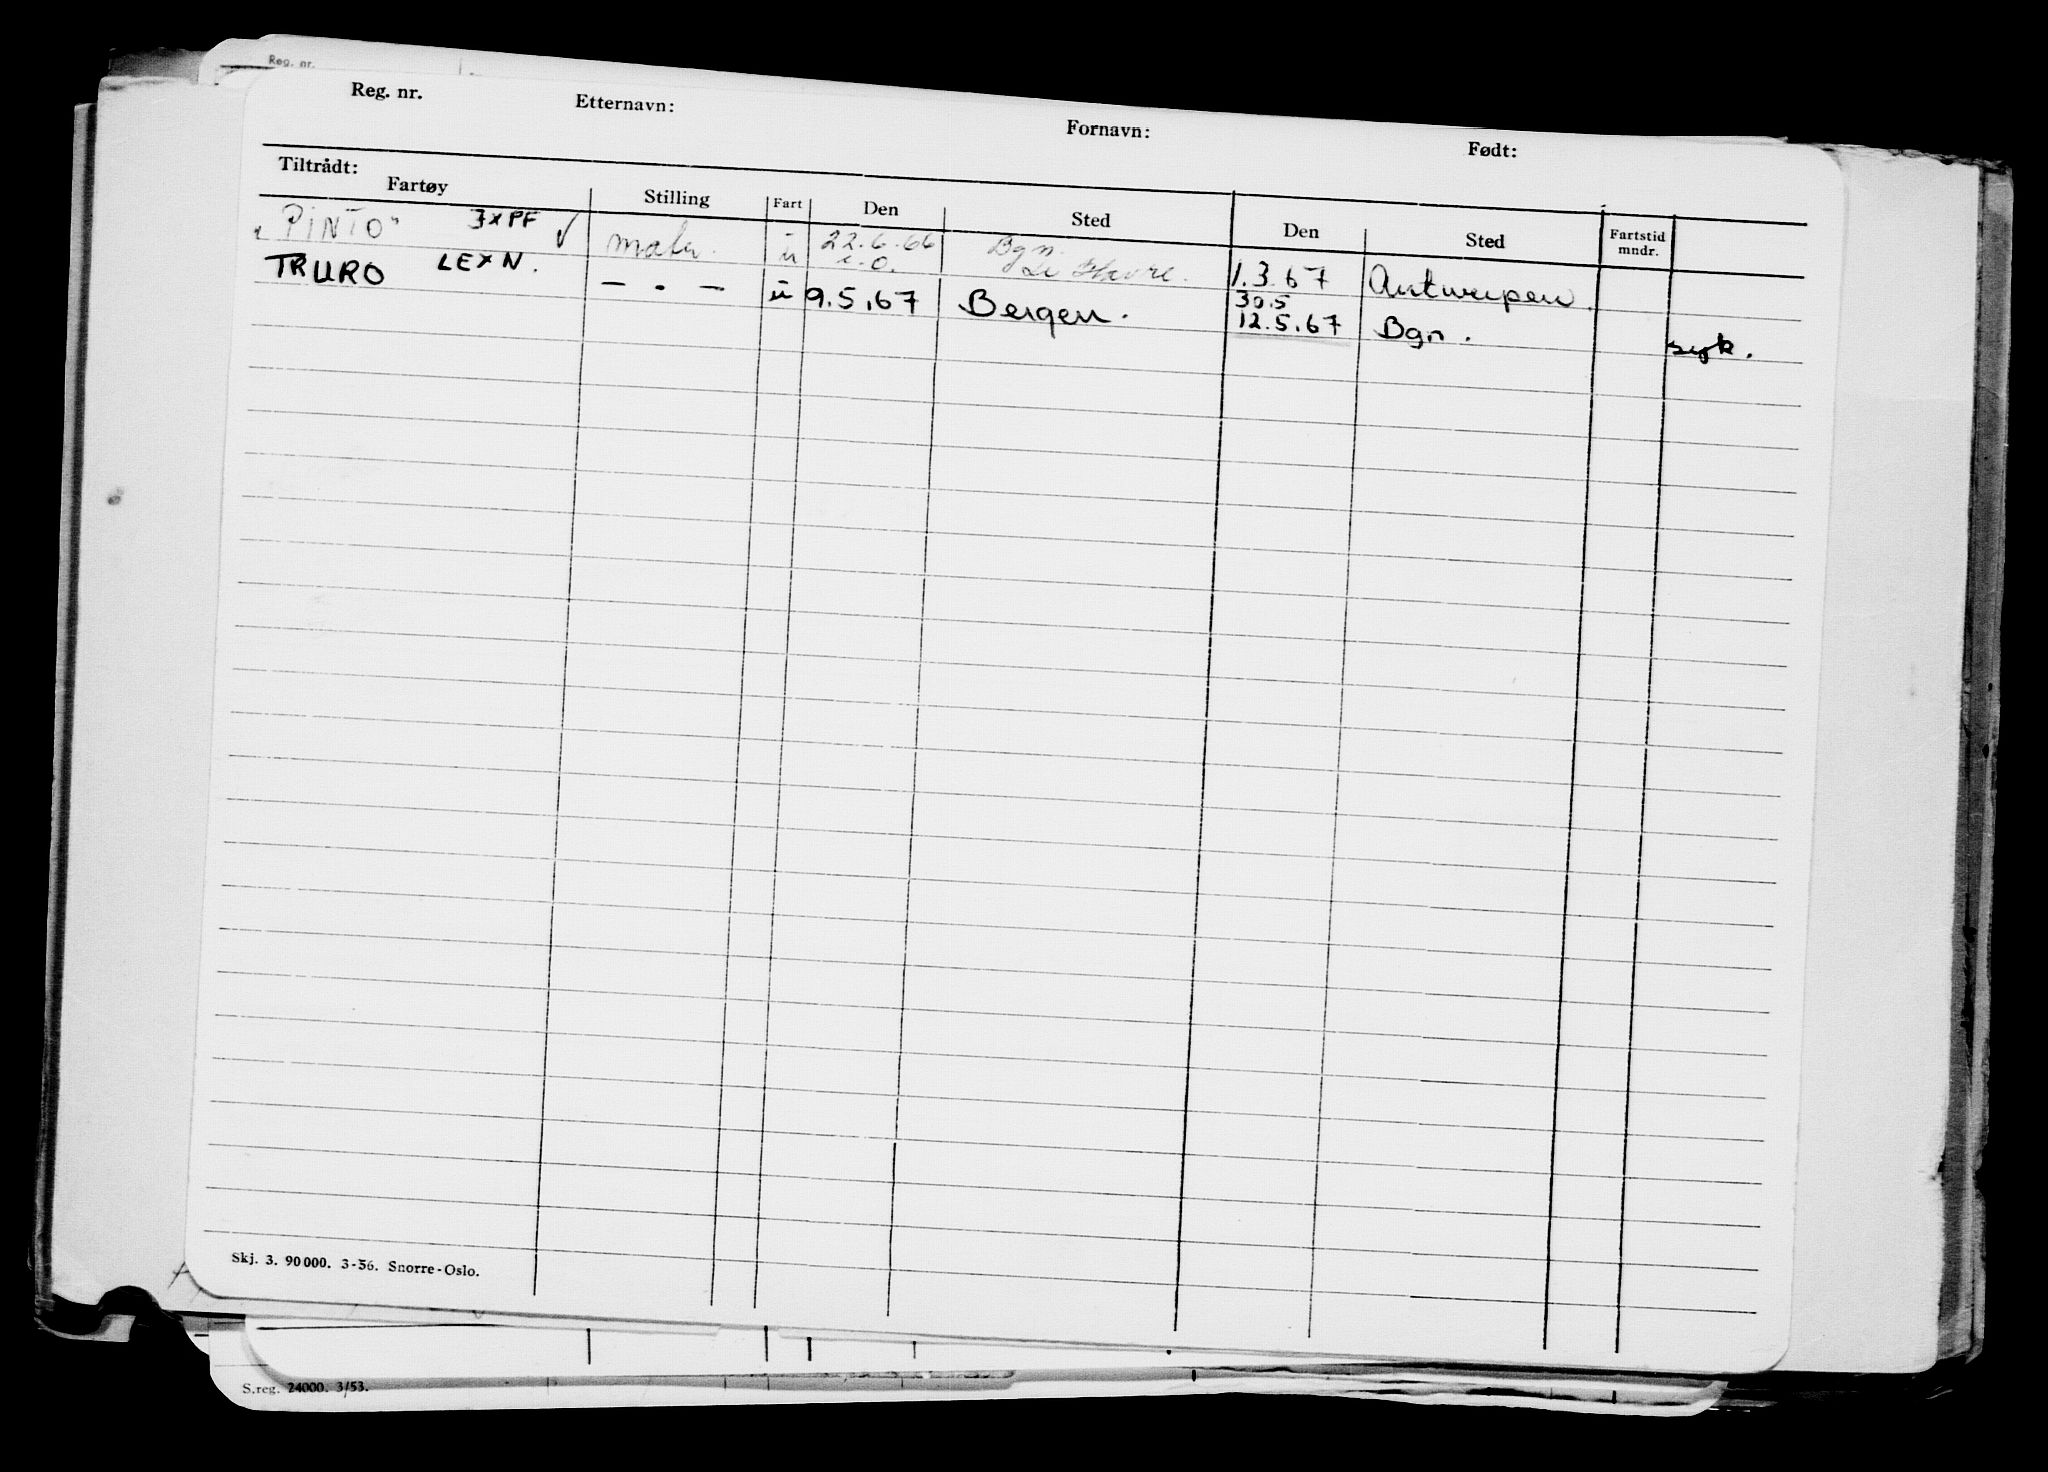 Reg. nr.
Reg. nr. Etternavn: Fornavn: Født:
Tiltrådt:
Fartøy Stilling Fart Den Sted Den Sted Fartstid mndr.
"PINTO" JXPF ✓ u 22.6.66 Bgn. 1.3.67 Antwerpen.
Le Havre.
TRURO LEXN. — . — u 9.5.67 Bergen. 30.5
12.5.67 Bgn. syk.
Skj. 3. 90000. 3-56. Snorre-Oslo.
S.reg. 24000. 3/53.